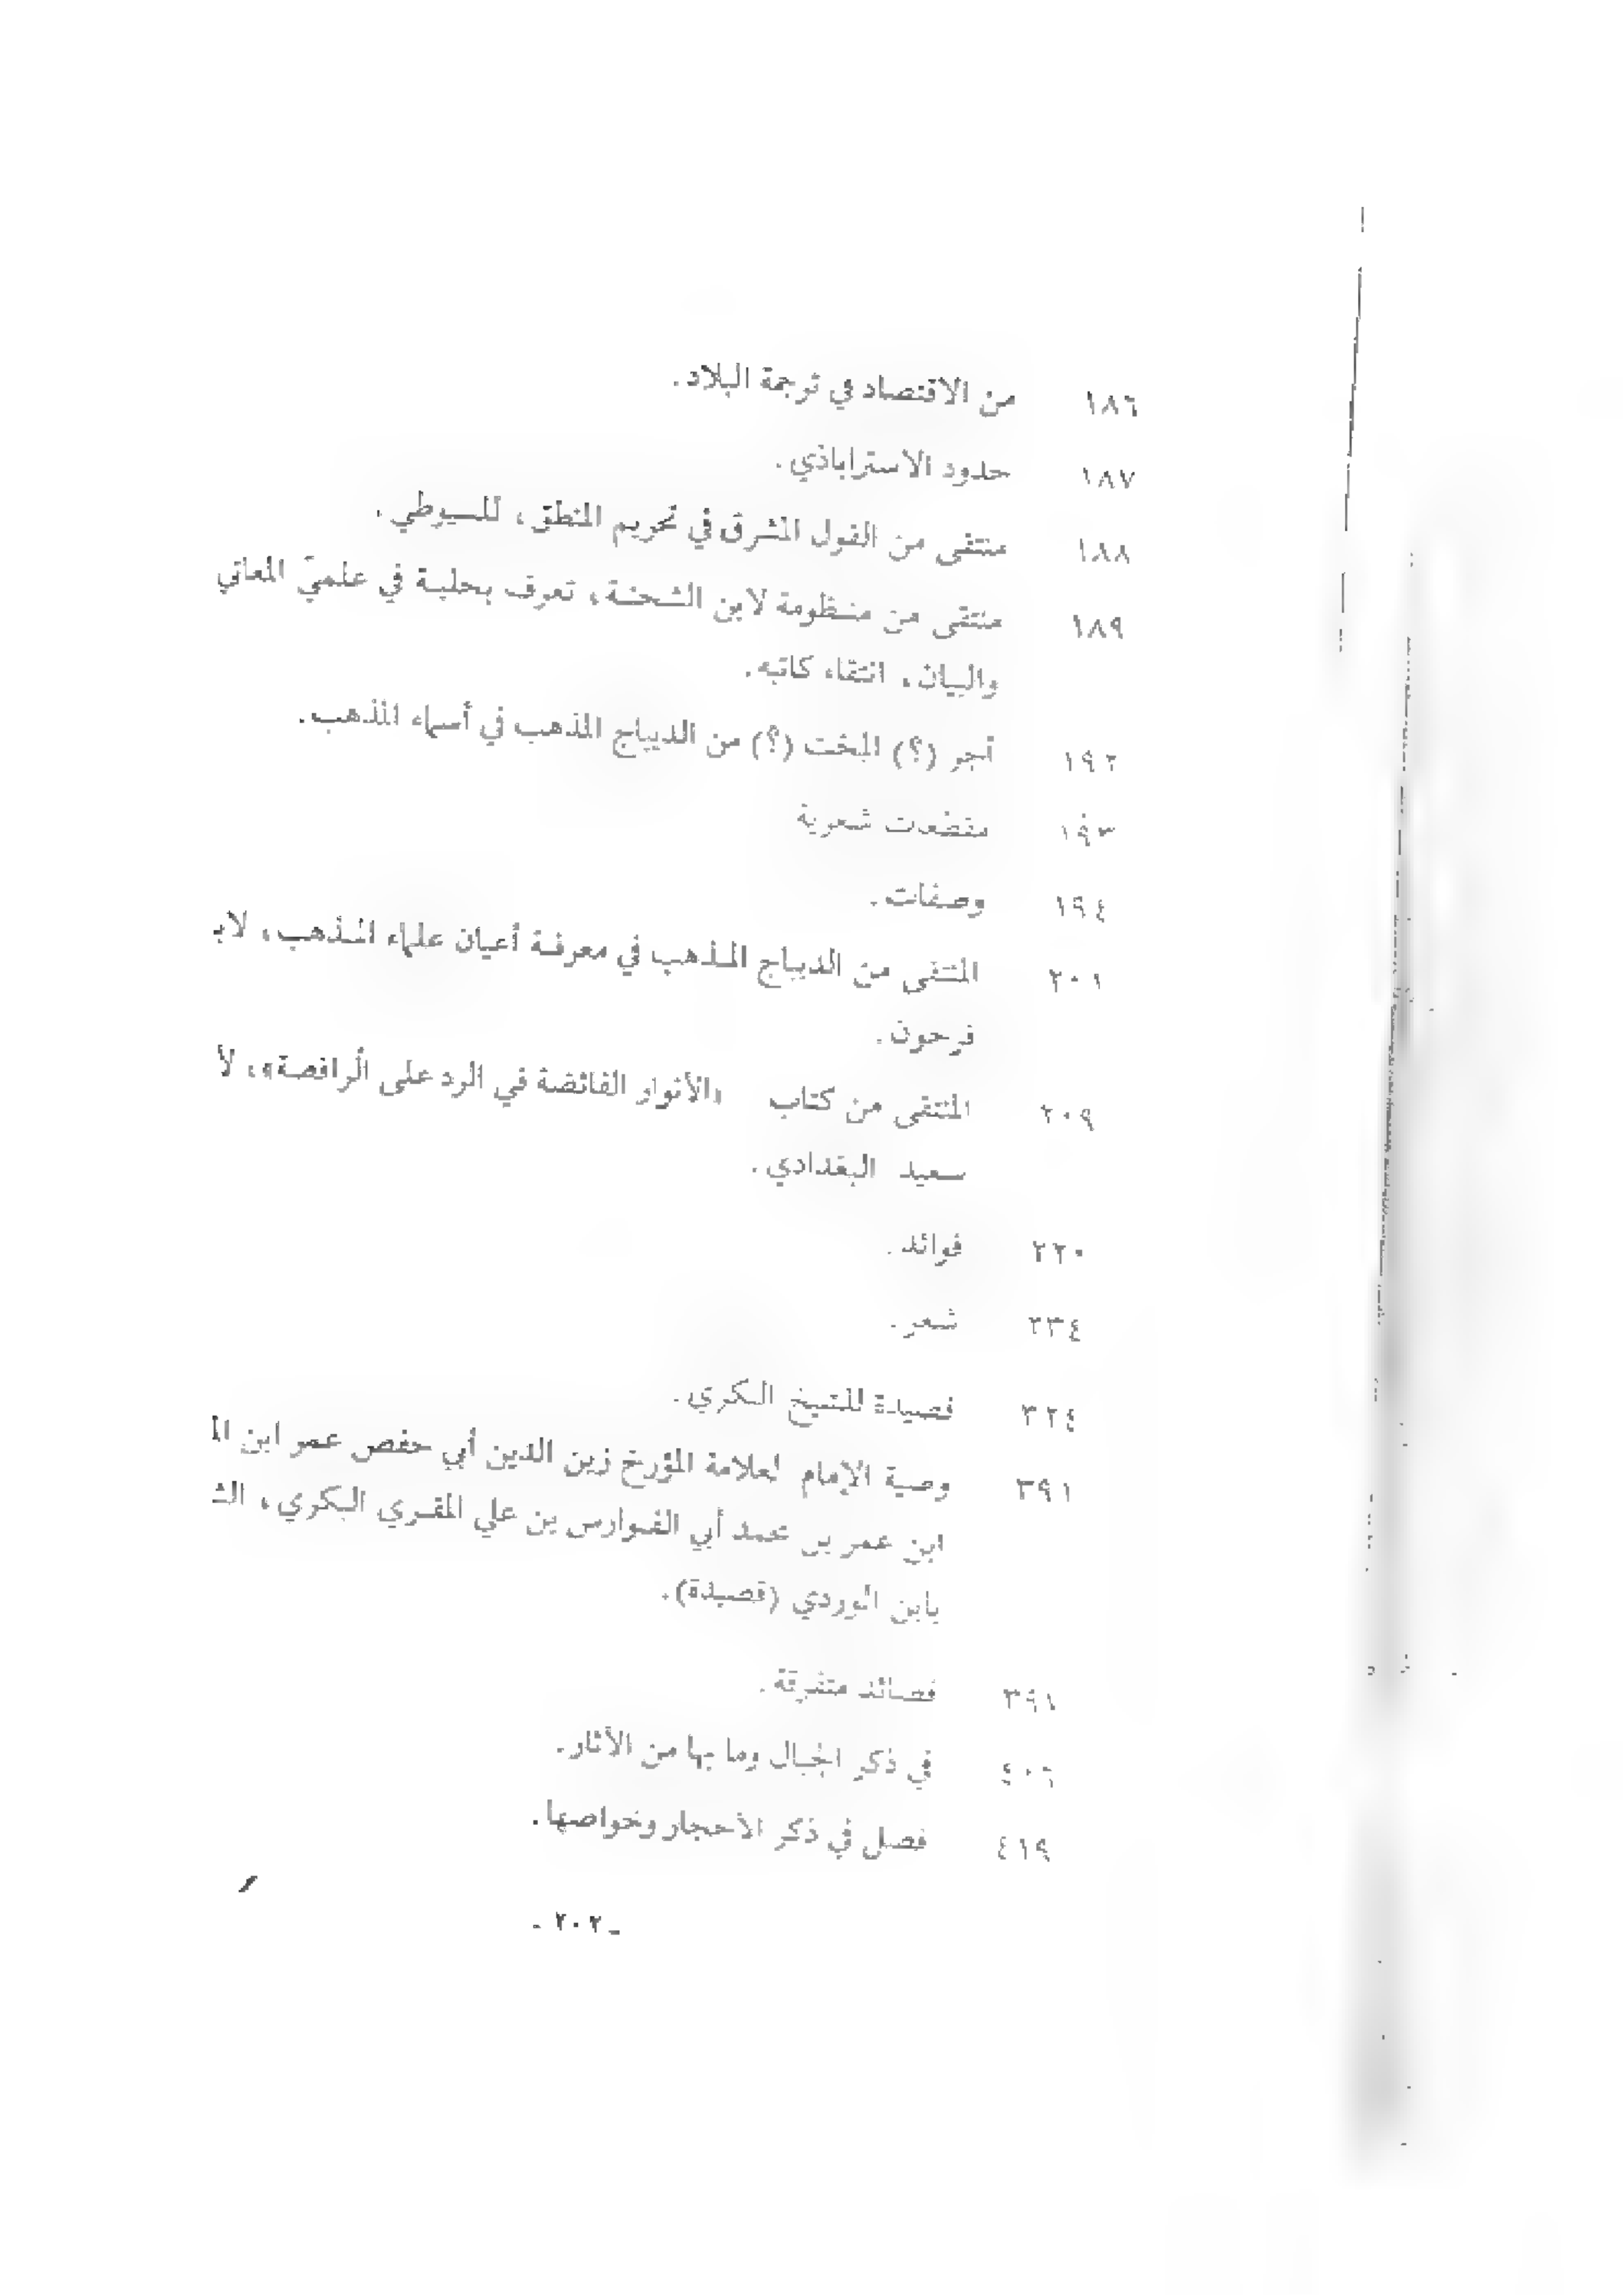 ١٨٦ من الاقتصاد في ترجمة البلاد.
١٨٧ حدود الاستراباذي.
١٨٨ منتقى من القول المشرق في تحريم المنطق، للسيوطي.
١٨٩ منتقى من منظومة لابن الشحنة، تعرف بحلية في علميّ المعاني
والبيان، انتقاء كاتبه.
١٩٢ أجر (؟) البخت (؟) من الديباج المذهب في أسماء المذهب.
١٩٣ مقطعات شعرية
١٩٤ وصفات.
٢٠١ المنتقى من الديباج المذهب في معرفة أعيان علماء المذهب، لابـ
فرحون.
٢٠٩ المنتقى من كتاب «الأنوار الفائضة في الرد على الرافضة»، لأ
سعيد البغدادي.
٢٢٠ فوائد.
٢٣٤ شعر.
٣٢٤ قصيدة للشيخ البكري.
٣٩١ وصية الإمام لعلامة المؤرخ زين الدين أبي حفص عمر ابن المـ
ابن عمر بن محمد أبي الفوارس بن علي المقري البكري، الشـ
بابن الوردي (قصيدة).
٣٩١ قصائد متفرقة.
٤٠٦ في ذكر الجبال وما بها من الآثار.
٤١٩ فصل في ذكر الأحجار وخواصها.
ـ ٢٠٢ ـ